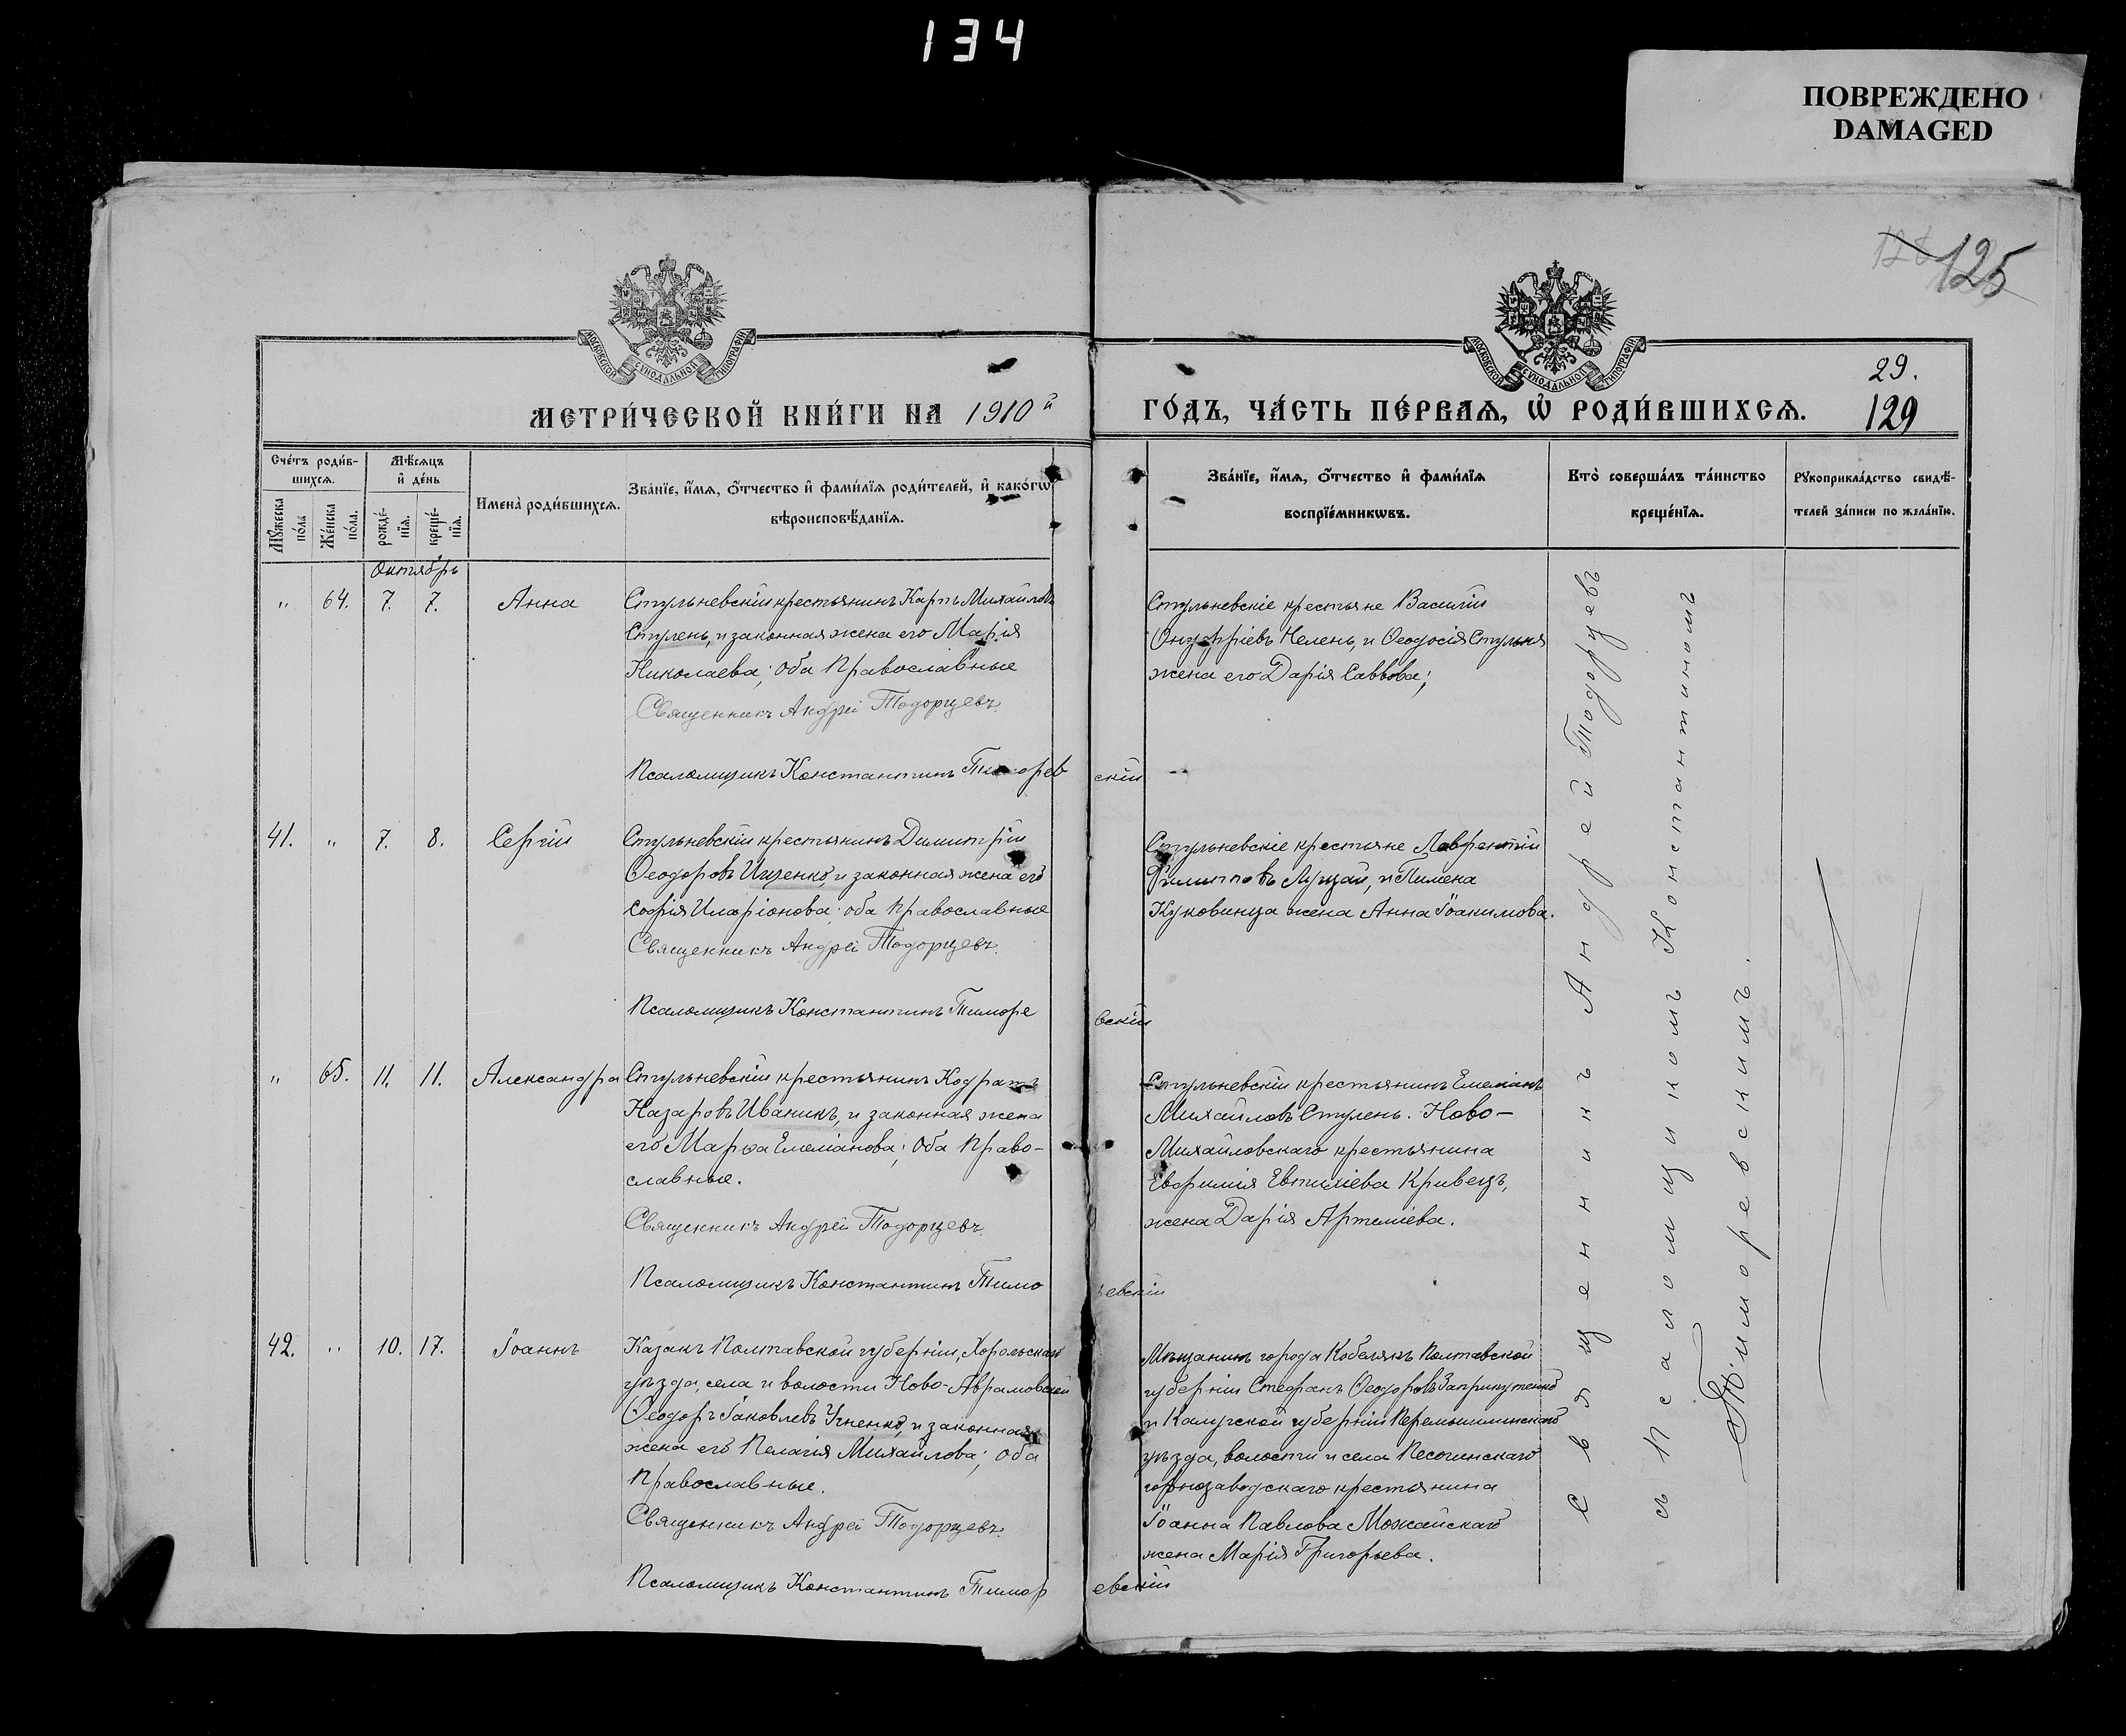 134
ПОВРЕЖДЕНО
DAMAGED
125
МОСКОВСКОЙ СѴНОДАЛЬНОЙ ТИПОГРАФІИ
МОСКОВСКОЙ СѴНОДАЛЬНОЙ ТИПОГРАФІИ
29.
МЕТРИ́ЧЕСКОЙ КНИ́ГИ НА 1910й
ГО́ДЪ, ЧА́СТЬ ПЕ́РВАѦ, Ѡ҆ РОДИ́ВШИХСѦ.
129
Сче́тъ роди́в-
шихсѧ.
Мꙋ́жеска по́ла
Же́нска по́ла.
Мѣ́сѧцъ
и҆ де́нь
рожде́-
нїѧ.
креще́-
нїѧ.
Имена̀ роди́вшихсѧ.
Зва́нїе, и҆́мѧ, ѻ҆́тчество и҆ фами́лїѧ роди́телей, и҆ како́гѡ
вѣроисповѣ́данїѧ.
Зва́нїе, и҆́мѧ, ѻ҆́тчество и҆ фами́лїѧ
воспрїе́мникѡвъ.
Кто̀ соверша́лъ та́инство
креще́нїѧ.
Рꙋкоприкла́дство свидѣ́-
телей за́писи по жела́нїю.
Октябрь
" 64. 7. 7. Анна
Стульневскій крестьянинъ Карпъ Михайловъ
Стулень, и законная жена его Марія
Николаева; оба Православные
Священникъ Андрей Тодорцевъ.
Псаломщикъ Константинъ Тиморевскій
Стульневскіе крестьяне Василій
Онуфріевъ Челень, и Ѳеодосія Стульня
жена его Дарія Саввова;
41. " 7. 8. Сергій
Стульневскій крестьянинъ Димитрій
Ѳеодоровъ Ищенко, и законная жена его
Софія Иларіонова; оба Православные
Священникъ Андрей Тодорцевъ.
Псаломщикъ Константинъ Тиморевскій
Стульневскіе крестьяне Лаврентій
Филипповъ Луцай, и Пимена
Куковинца жена Анна Іоакимова.
" 65. 11. 11. Александра
Стульневскій крестьянинъ Кодратъ
Назаровъ Иваникъ, и законная жена
его Марѳа Емеліанова; Оба Право-
славные.
Священникъ Андрей Тодорцевъ.
Псаломщикъ Константинъ Тиморевскій
Стульневскій крестьянинъ Емеліанъ
Михайловъ Стулень. Ново-
Михайловскаго крестьянина
Евфимія Евтихіева Кривецъ,
жена Дарія Артеміева.
42. " 10. 17. Іоаннъ
Казакъ Полтавской губерніи, Хорольскаго
уѣзда, села и волости Ново-Аврамовской
Ѳеодоръ Іаковлевъ Усненко, и законная
жена его Пелагія Михайлова; оба
Православные.
Священникъ Андрей Тодорцевъ.
Псаломщикъ Константинъ Тиморевскій
Мѣщанинъ города Кобелякъ Полтавской
губерніи Стефанъ Ѳеодоровъ Заприкутенко
и Калужской губерніи Перемышлинскаго
уѣзда, волости и села Песочинскаго
горнозаводскаго крестьянина
Іоанна Павлова Можайскаго
жена Марія Григорьева.
Священникъ Андрей Тодорцевъ
съ Псаломщикомъ Константиномъ
Тиморевскимъ.